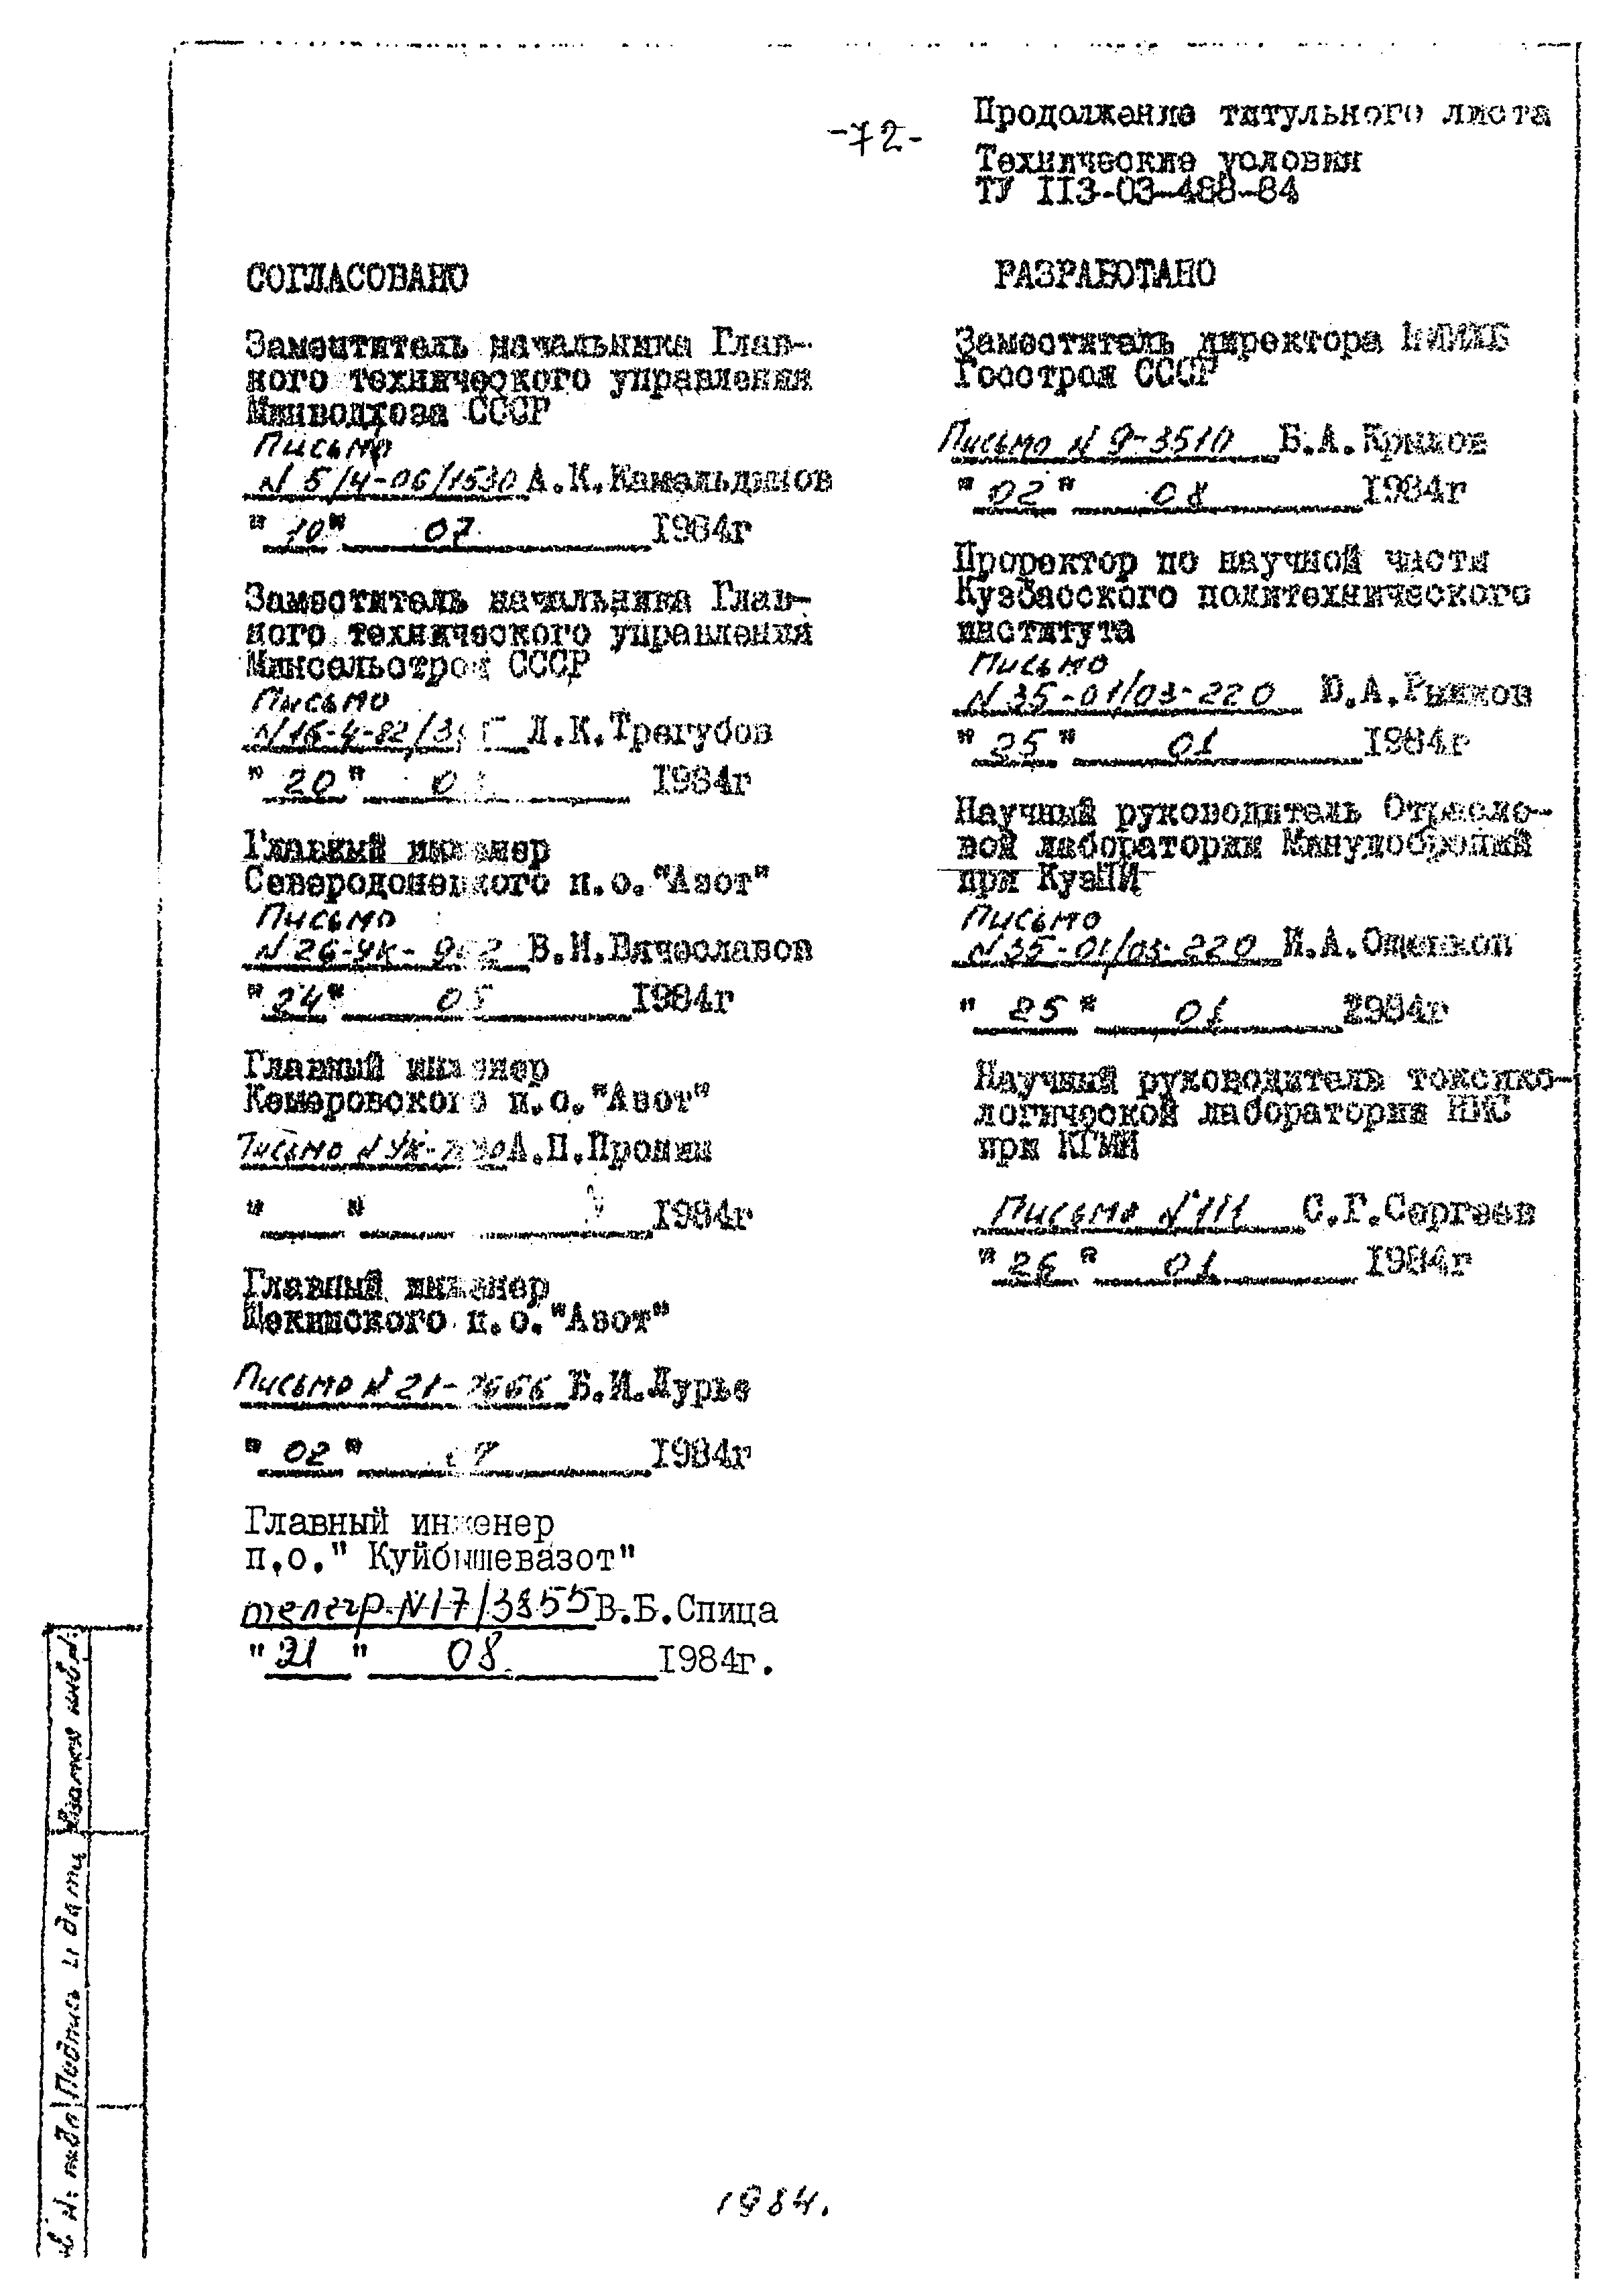 -72-
Продолжение титульного листа
Технические условия
ТУ II3-03-488-84
СОГЛАСОВАНО
Заместитель начальника Глав-
ного технического управления
Минводхоза СССР
Письмо
N 5/4-06/1530 А.К.Камальдинов
"10" 07 1984г
Заместитель начальника Глав-
ного технического управления
Минсельстроя СССР
Письмо
N 16-4-82/3 Л.К.Трегубов
"20" 1984г
Главный инженер
Северодонецкого п.о."Азот"
Письмо
N 26-УК- В.И.Вячеславов
"24" 05 1984г
Главный инженер
Кемеровского п.о."Азот"
Письмо А.П.Пронин
" " 1984г
Главный инженер
Щекинского п.о."Азот"
Письмо N 21-7666 Б.И.Лурье
"02" 1984г
Главный инженер
п.о." Куйбышевазот"
телегр. N17/3855 В.Б.Спица
"31" 08 1984г.
РАЗРАБОТАНО
Заместитель директора НИИЖБ
Госстроя СССР
Письмо N 9-3510 Б.А.Крылов
"02" 08 1984г
Проректор по научной части
Кузбасского политехнического
института
Письмо
N 35-01/03-220 Ю.А.Рыжков
"25" 01 1984г
Научный руководитель Отрасле-
вой лаборатории Минудобрений
при КузПИ
Письмо
N 35-01/03-220 И.А.Ощепков
"25" 01 1984г
Научный руководитель токсико-
логической лаборатории НИС
при КГМИ
Письмо N 111 С.Г.Сергеев
"26" 01 1984г
Взамен инв.N.
Подпись и дата
N: подл
1984.